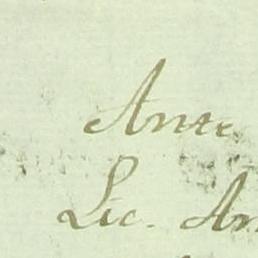 Ante
Lic. An